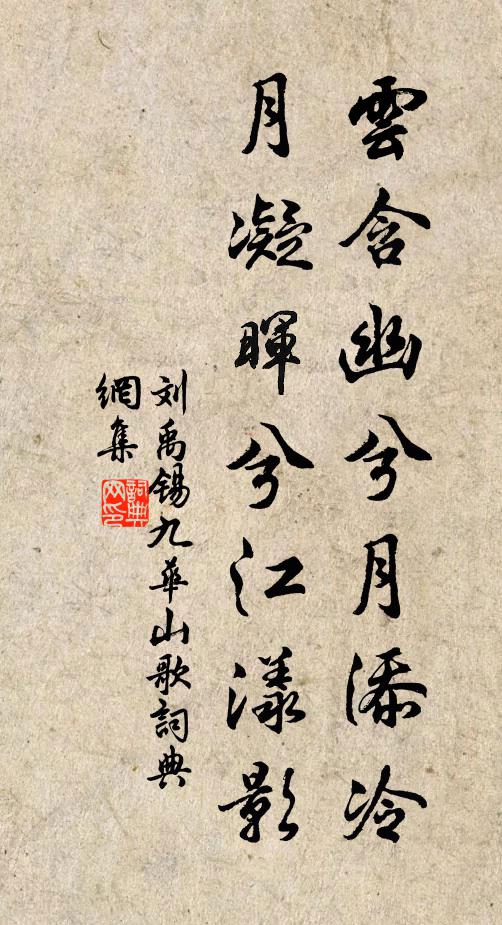 雲含幽兮月添冷
月凝暉兮江漾影
刘禹锡九華山歌詞典
網集
詞典
网印